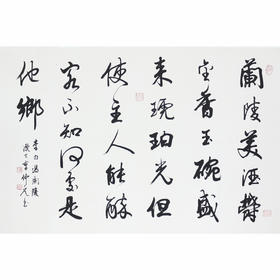 蘭陵美酒鬱
金香玉碗盛
来琥珀光但
使主人能醉
客不知何處是
他鄉
李白